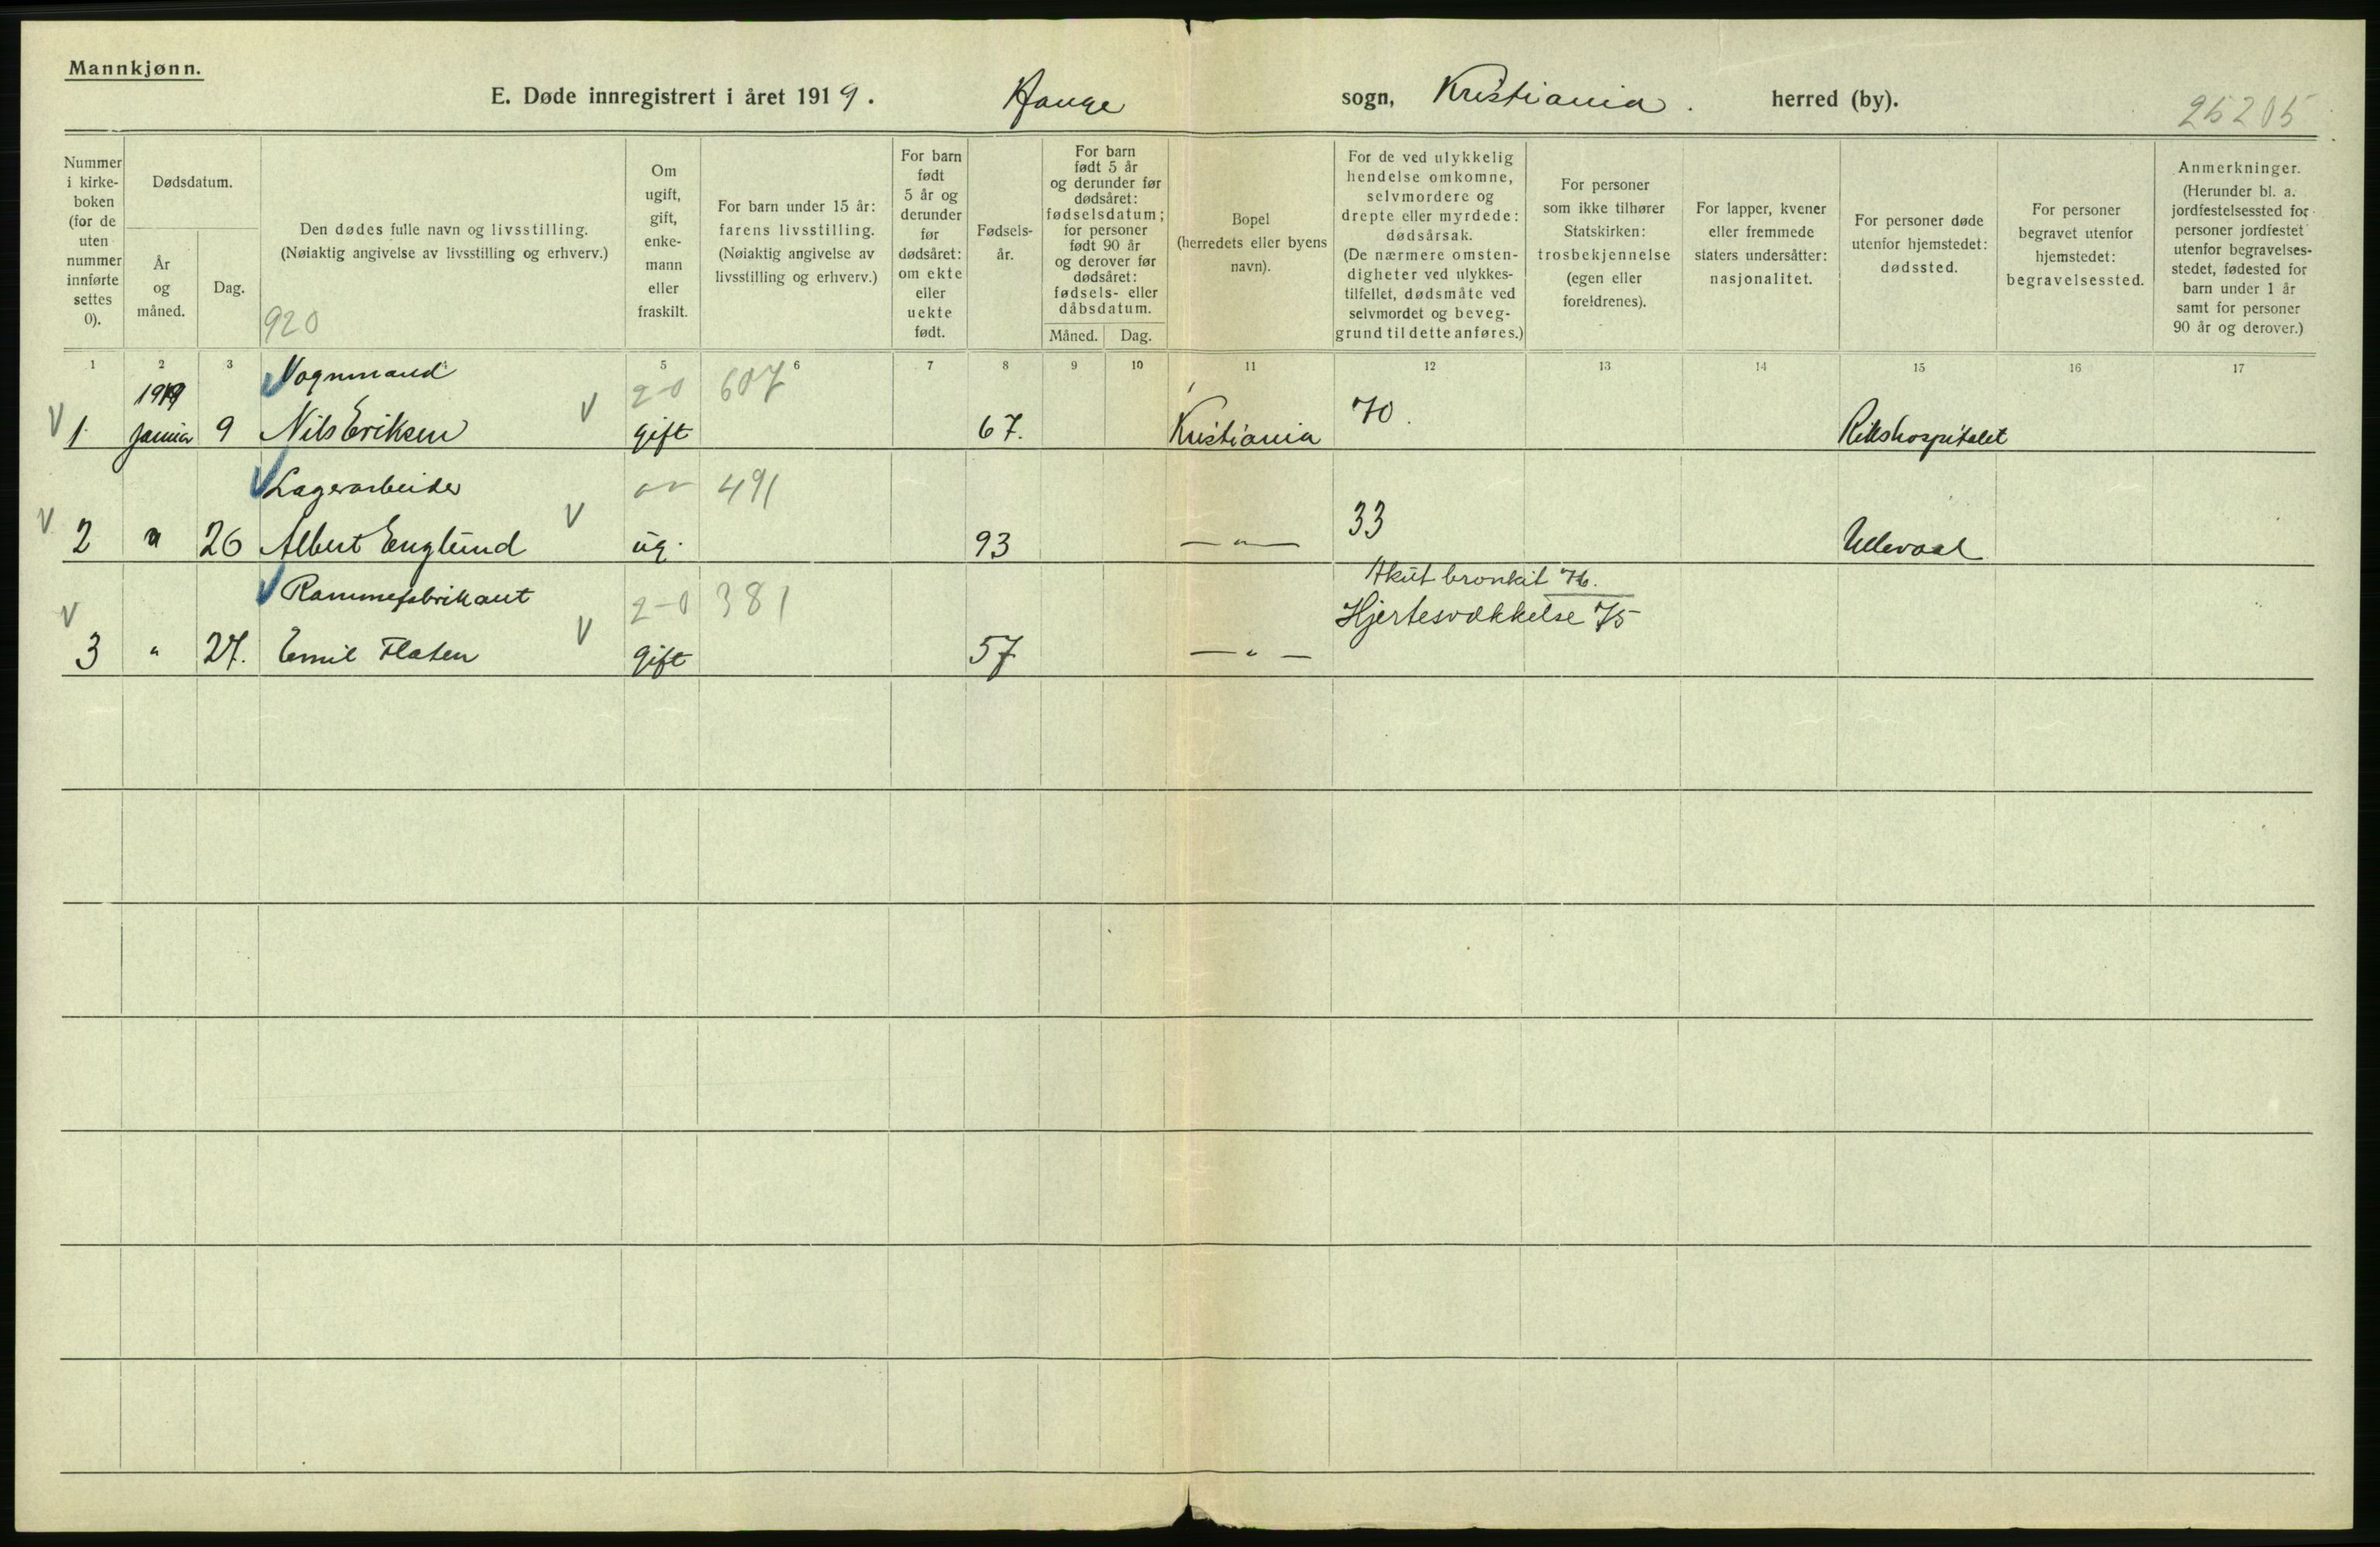 Mannkjønn.
E. Døde innregistrert i året 1919. Hauge sogn, Kristiania. herred (by).
25205
Nummer i kirke-boken (for de uten nummer innførte settes 0).
Dødsdatum.
År og måned.
Dag.
Den dødes fulle navn og livsstilling.
(Nøiaktig angivelse av livsstilling og erhverv.)
920
Om ugift, gift, enke-mann eller fraskilt.
For barn under 15 år: farens livsstilling.
(Nøiaktig angivelse av livsstilling og erhverv.)
For barn født 5 år og derunder før dødsåret: om ekte eller uekte født.
Fødsels-år.
For barn født 5 år og derunder før dødsåret: fødselsdatum; for personer født 90 år og derover før dødsåret: fødsels- eller dåbsdatum.
Måned. Dag.
Bopel (herredets eller byens navn).
For de ved ulykkelig hendelse omkomne, selvmordere og drepte eller myrdede: dødsårsak.
(De nærmere omsten-digheter ved ulykkes-tilfellet, dødsmåte ved selvmordet og beveg-grund til dette anføres.)
For personer som ikke tilhører Statskirken: trosbekjennelse (egen eller foreldrenes).
For lapper, kvener eller fremmede staters undersåtter: nasjonalitet.
For personer døde utenfor hjemstedet: dødssted.
For personer begravet utenfor hjemstedet: begravelsessted.
Anmerkninger.
(Herunder bl. a. jordfestelsessted for personer jordfestet utenfor begravelses-stedet, fødested for barn under 1 år samt for personer 90 år og derover.)
1 2 3 5 6 7 8 9 10 11 12 13 14 15 16 17
1919 Vognmand 2-0 607 70.
V 1 Januar 9 Nils Eriksen V gift 67. Kristiania Rikshospitalet
Lagerarbeider 491 33
V 2 " 26 Albert Englund V ug. 93 — " — Ullevaal
Rammefabrikant 2-0 381 Akut bronkit 76.
Hjertesvækkelse 75
V 3 " 27. Emil Flaten V gift 57 — " —